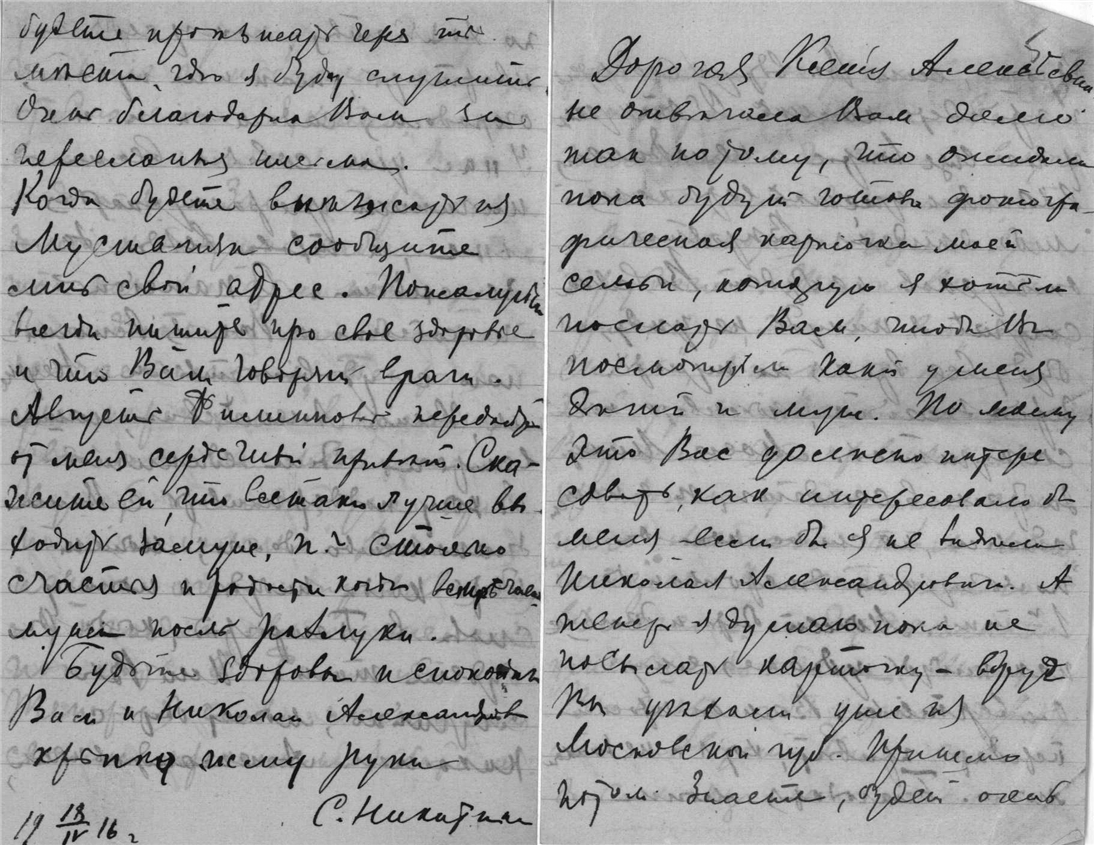 будете проѣзжать чрезъ тѣ
мѣста гдѣ я буду служить.
Очень благодарна Вамъ за
пересланныя письма.
Когда будете выѣзжать изъ
сообщите
мнѣ свой адресъ. Пожалуйста
всегда пишите про свое здоровье
и что Вамъ говорятъ врачи.
Августѣ передайте
отъ меня сердечный привѣтъ. Ска-
жите ей, что всетаки лучше вы-
ходить замужъ, п.ч. столько
счастья и радости когда встрѣчаешь
мужа послѣ разлуки.
Будьте здоровы и спокойны
Вамъ и Николаю Александров
крѣпко жму руки
С. Никитина
19 18/IV 16 г
Дорогая Ксенія Алексѣевна
не отвѣчала Вамъ долго
такъ потому, что ожидала
пока будутъ готовы фотогра-
фическая карточка моей
семьи, которую я хотѣла
послать Вамъ, чтобы Вы
посмотрѣли какіе у меня
дѣти и мужъ. По моему
это Васъ должно интере
совать, какъ интересовало бы
меня если бы я не видѣла
Николая Александровича. А
теперь я думаю пока не
посылать карточку – вдругъ
Вы уѣхали уже изъ
Московской губ. Пришлю
потомъ. Знаете, будетъ очень